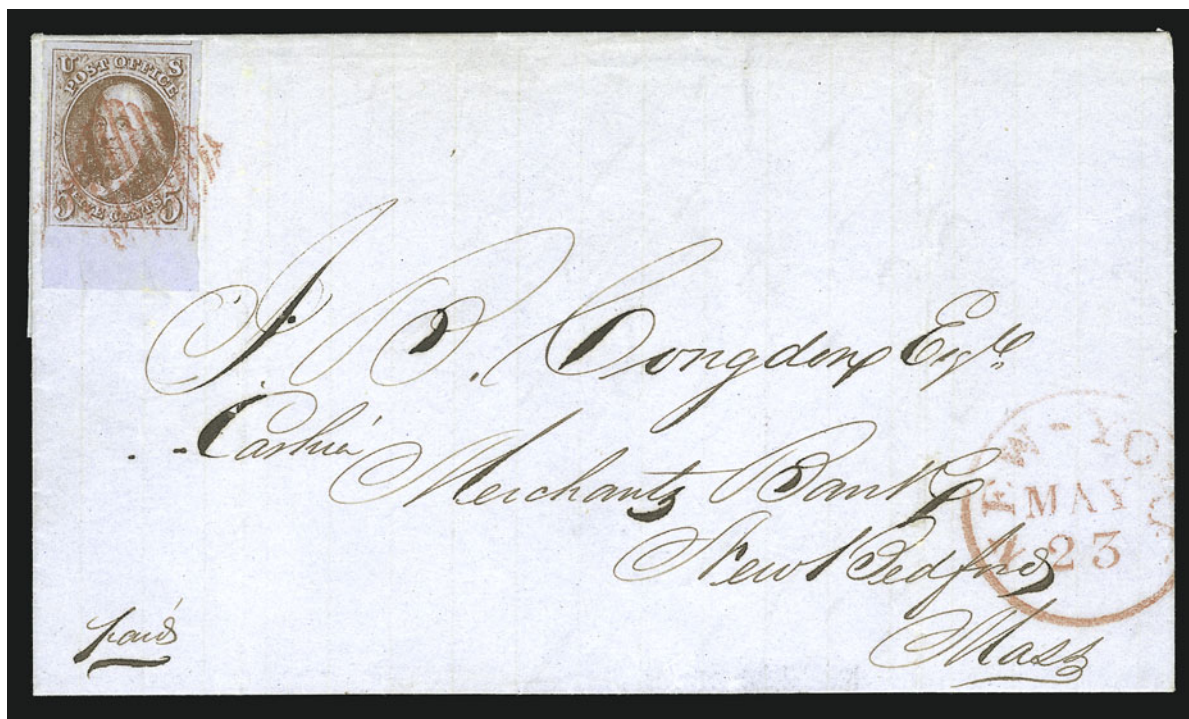 U S
POST OFFICE
5 FIVE CENTS 5
J. B. Congdon Esqr.
Cashier
Merchants Bank
New Bedford
Mass
paid
NEW-YORK
MAY
23